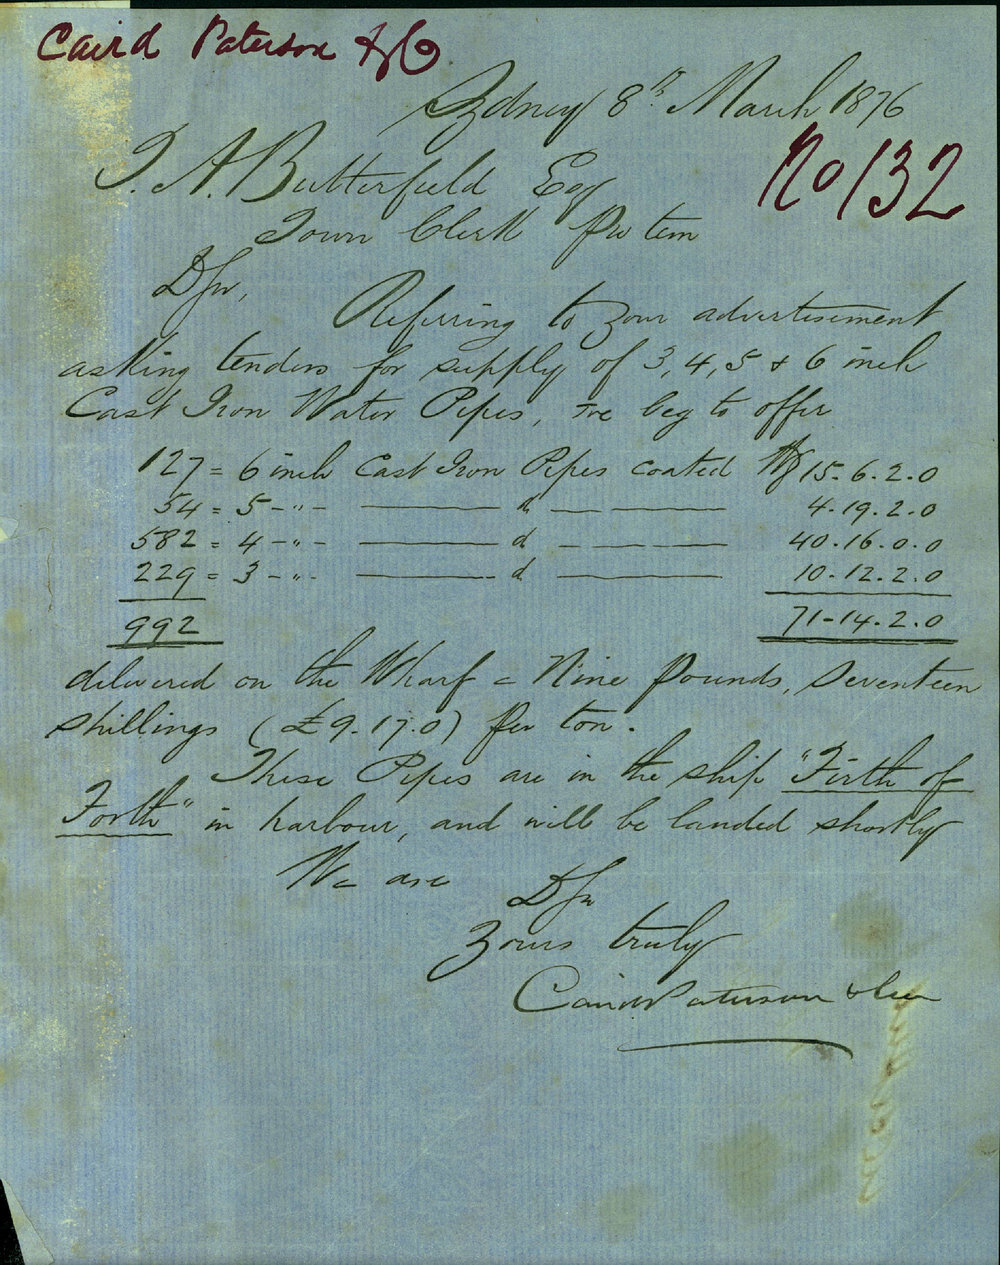 Caird Paterson & Co
Sydney 8th March 1876
No 132
J. A. Butterfield Esq
Town Clerk Pro tem
D Sir,
Referring to your advertisement
asking tenders for supply of 3, 4, 5 & 6 inch
Cast Iron Water Pipes, we beg to offer
127 = 6 inch Cast Iron Pipes coated Wg 15. 6. 2. 0
54 = 5 - " - d 4. 19. 2. 0
582 = 4 - " - d 40. 16. 0. 0
229 = 3 - " - d 10. 12. 2. 0
992 71 - 14. 2. 0
delivered on the Wharf = Nine Pounds, Seventeen
shillings (£9. 17. 0) per ton.
These Pipes are in the ship "Firth of
Forth" in harbour, and will be landed shortly
We are
D Sir
Yours truly
Caird Paterson & Co